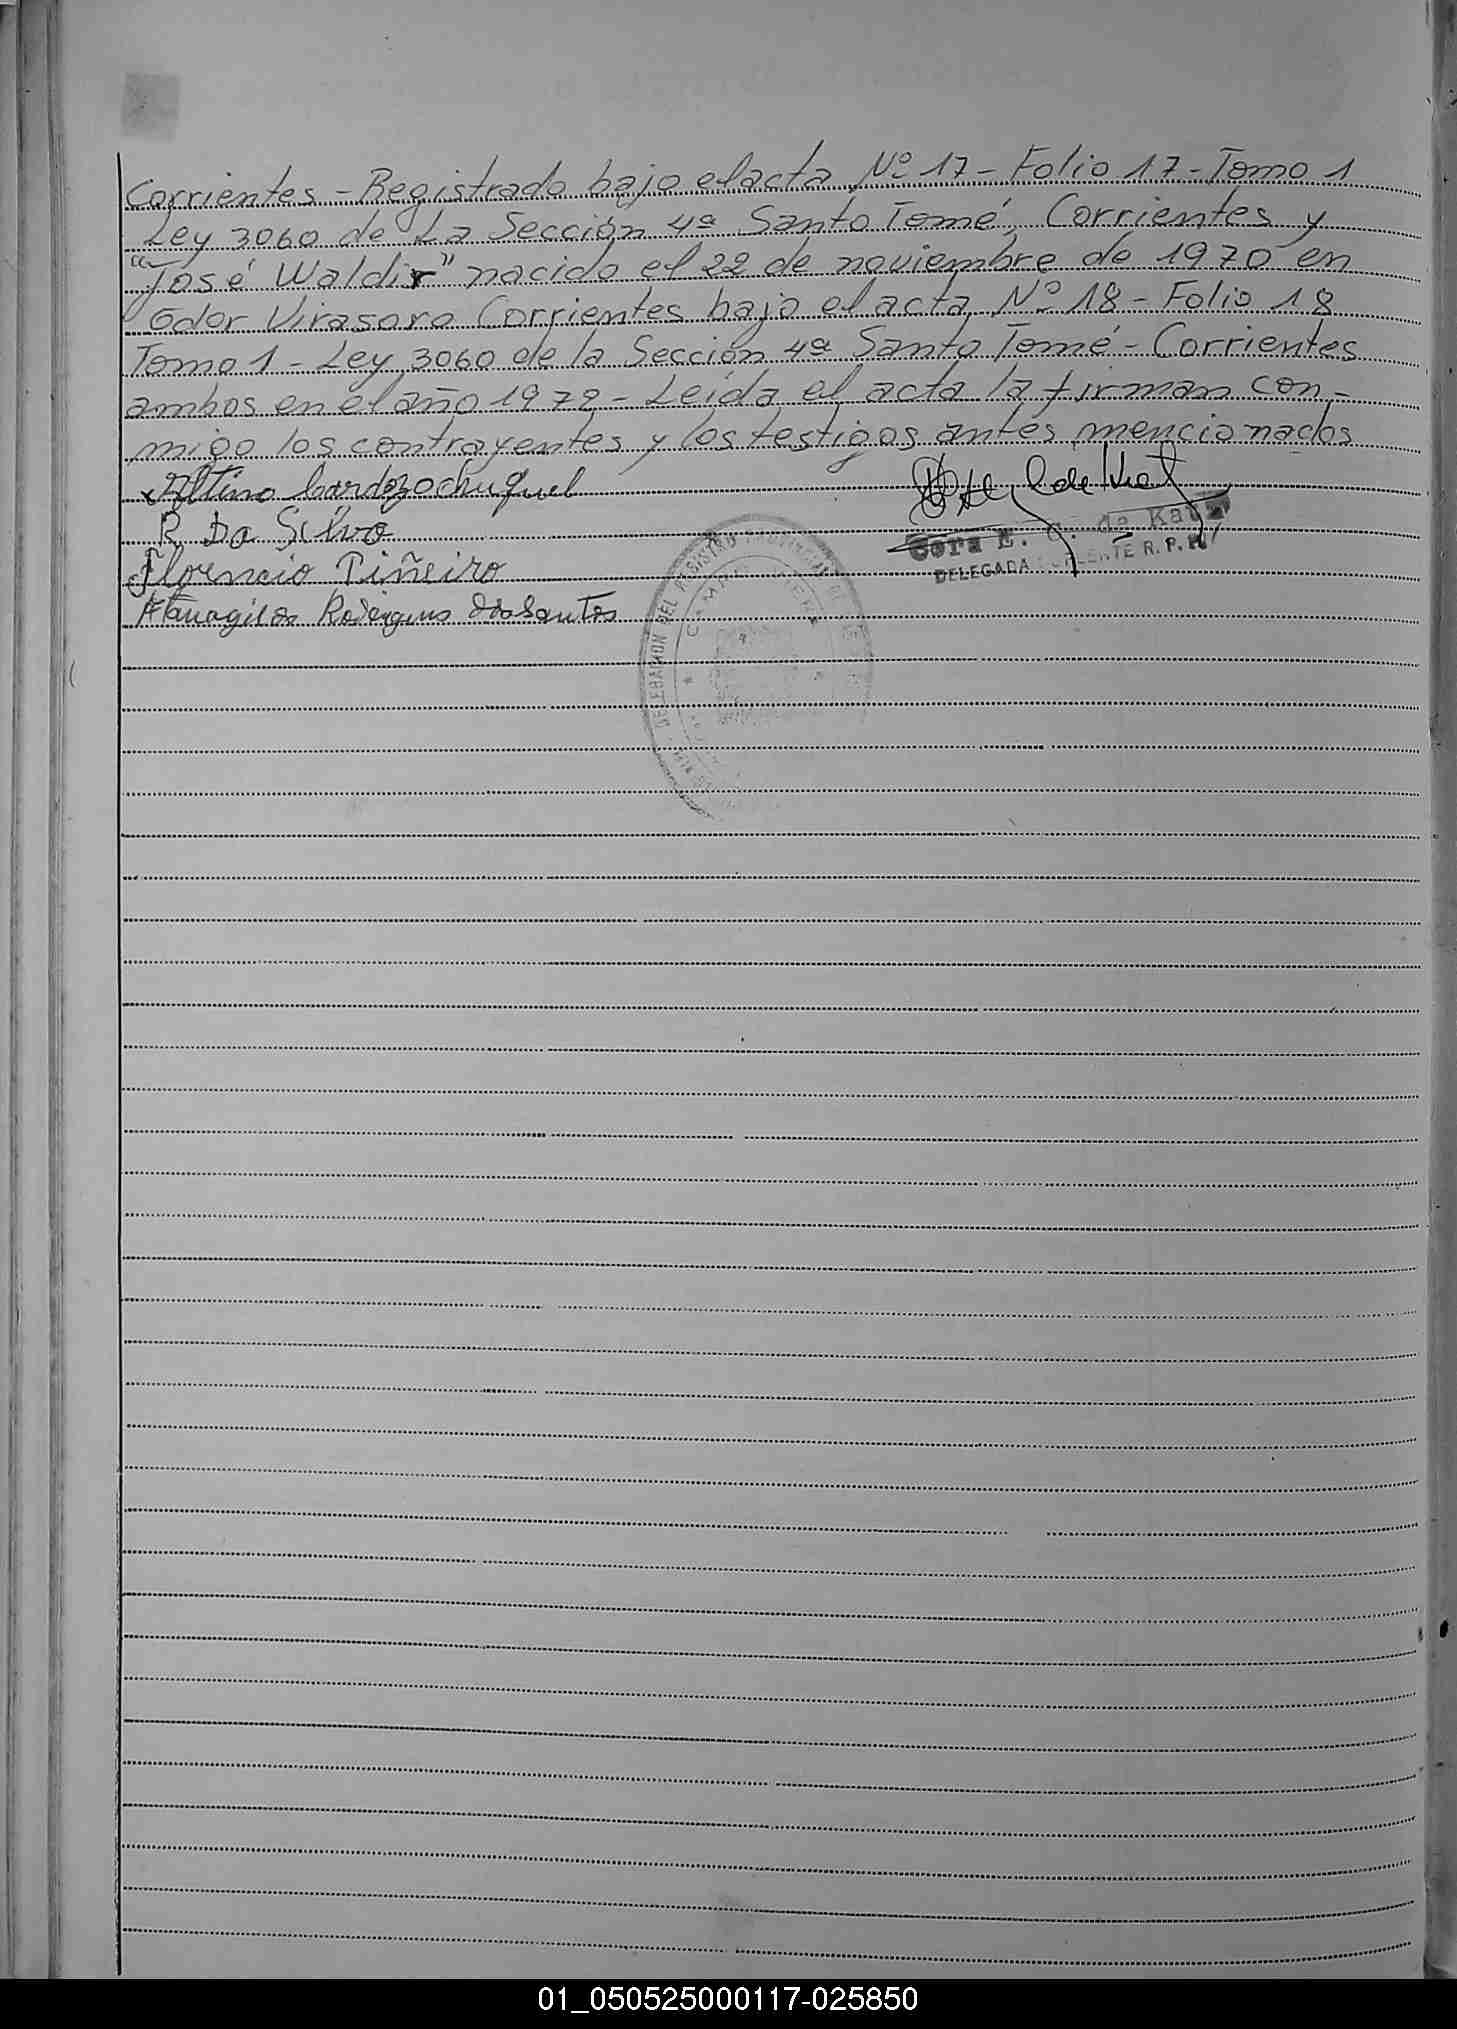 Corrientes - Registrado bajo el acta Nº 17 - Folio 17 - Tomo 1
Ley 3060 de La Sección 4ª Santo Tomé, Corrientes y
"José Waldir" nacido el 22 de noviembre de 1970 en
Gdor Virasoro Corrientes bajo el acta Nº 18 - Folio 18
Tomo 1 - Ley 3060 de la Sección 4ª Santo Tomé - Corrientes
ambos en el año 1972 - Leída el acta la firman con-
migo los contrayentes y los testigos antes mencionados
Altino Cardozo
R Da Silva
Florencio Piñeiro
Rodrigues dos Santos
Cora E. de Katz
DELEGADA R. P. P.
DELEGACION DEL REGISTRO PROVINCIAL
01_050525000117-025850